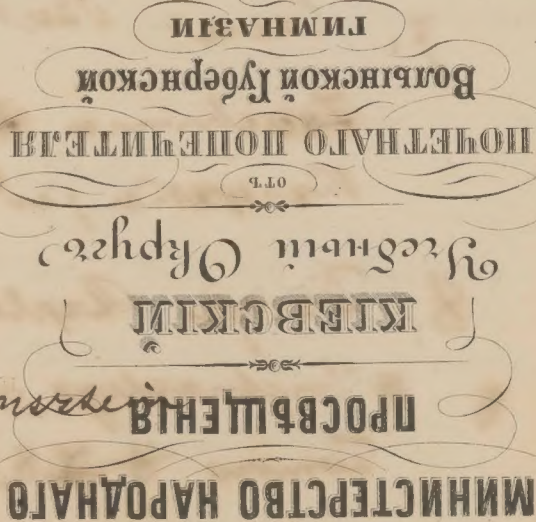 МИНИСТЕРСТВО НАРОДНАГО
ПРОСВѢЩЕНІЯ
КІЕВСКІЙ
Учебный Округъ
отъ
ПОЧЕТНАГО ПОПЕЧИТЕЛЯ
Волынской Губернской
ГИМНАЗІИ